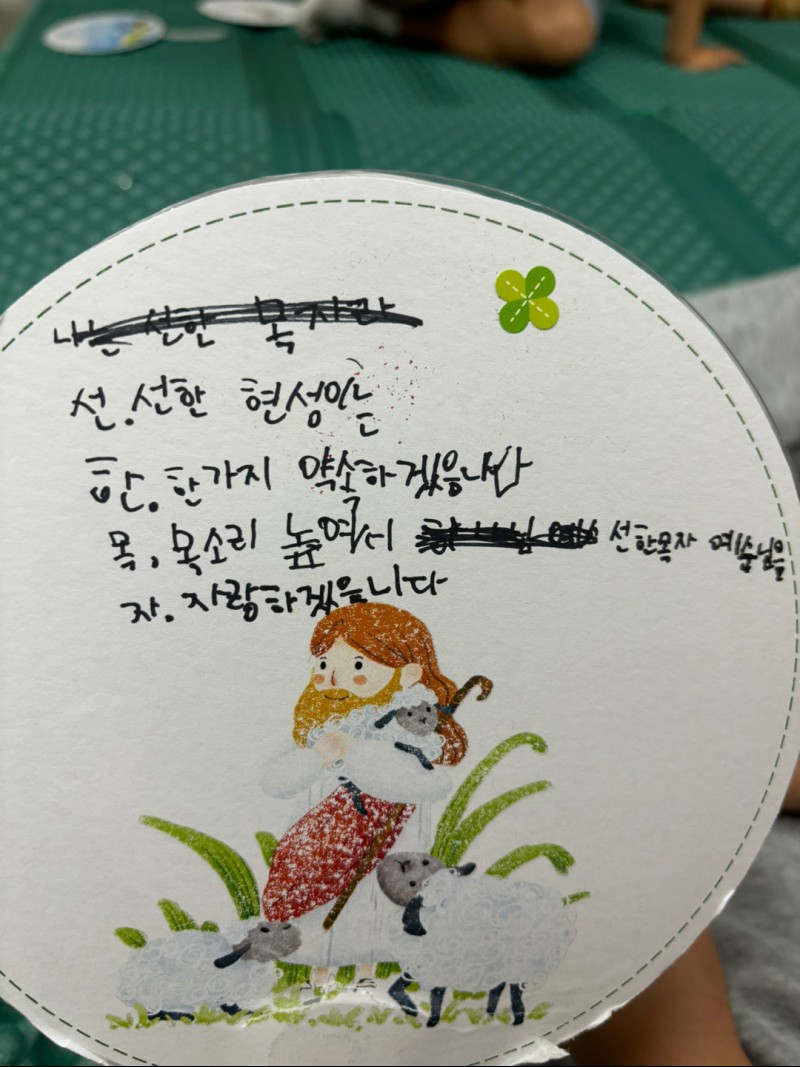 나는 선한 목자라
선. 선한 현성이는
한. 한가지 약속하겠읍니다
목. 목소리 높여서 선한목자 예수님을
자. 자랑하겠읍니다